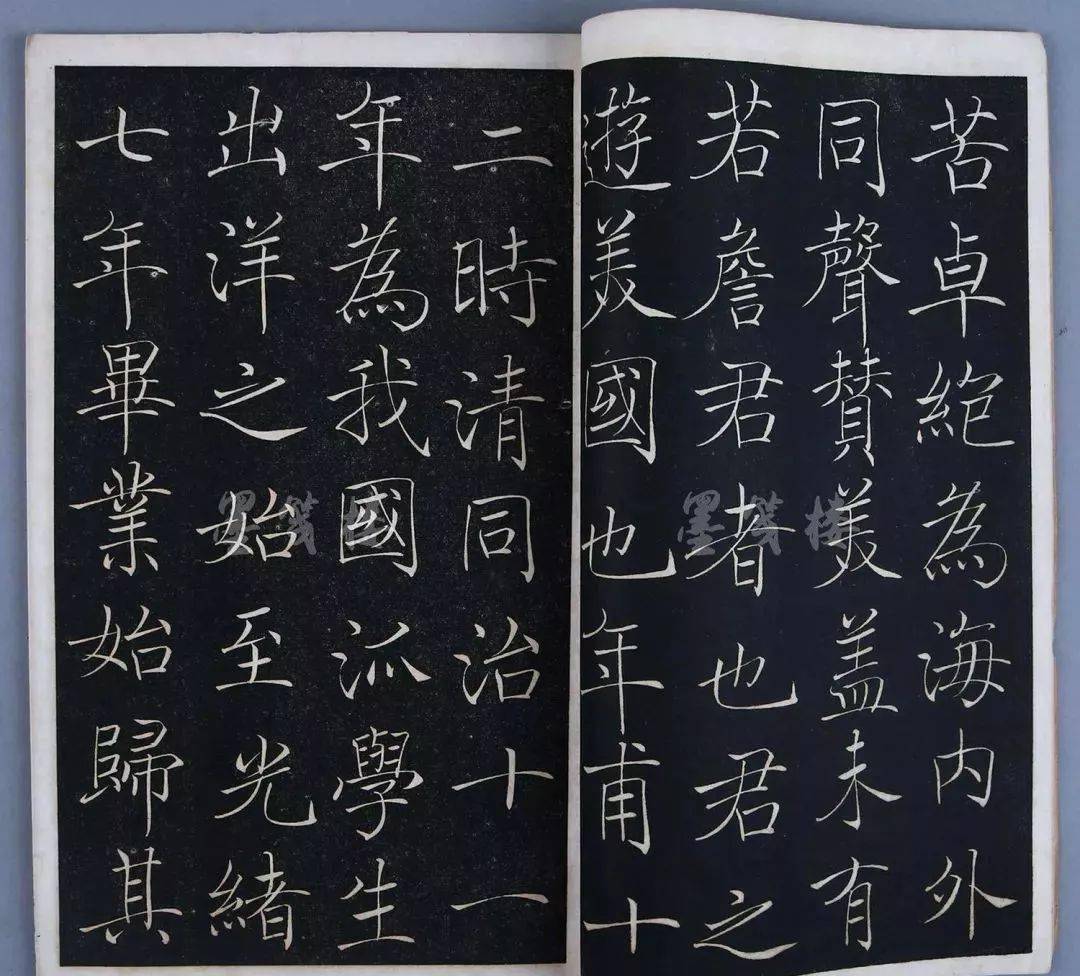 苦卓絕為海内外
同聲賛美蓋未有
若詹君者也君之
遊美國也年甫十
二時清同治十一
年為我國派學生
出洋之始至光緒
七年畢業始歸其
墨箋樓
墨箋樓